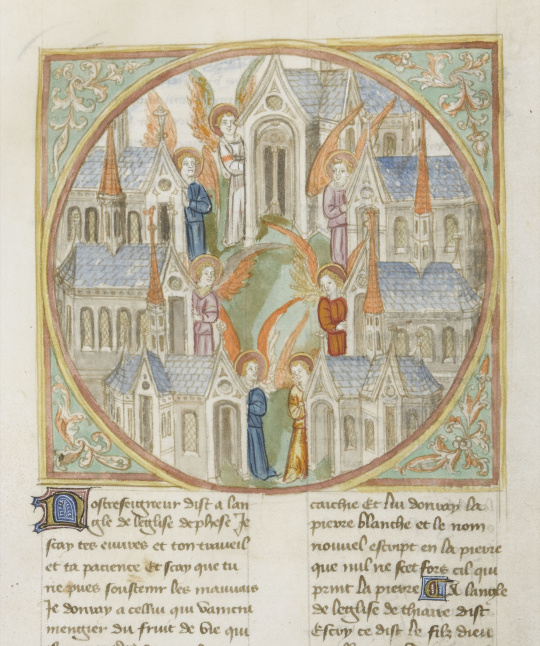 Nostreseigneur dist a lan
gle de leglise dephese Je
scay tes euures et ton traueil
et ta pacience Et scay que tu
ne pues soustenir les mauuais
Je donray a cellui qui vaincra
mengier du fruit de vie qui
caichie Et lui donray la
pierre blanche et le nom
nouuel escript en la pierre
que nul ne scet fors cil qui
prent la pierre A langle
de leglise de thiatre dist
Escoy ce dist le filz dieu